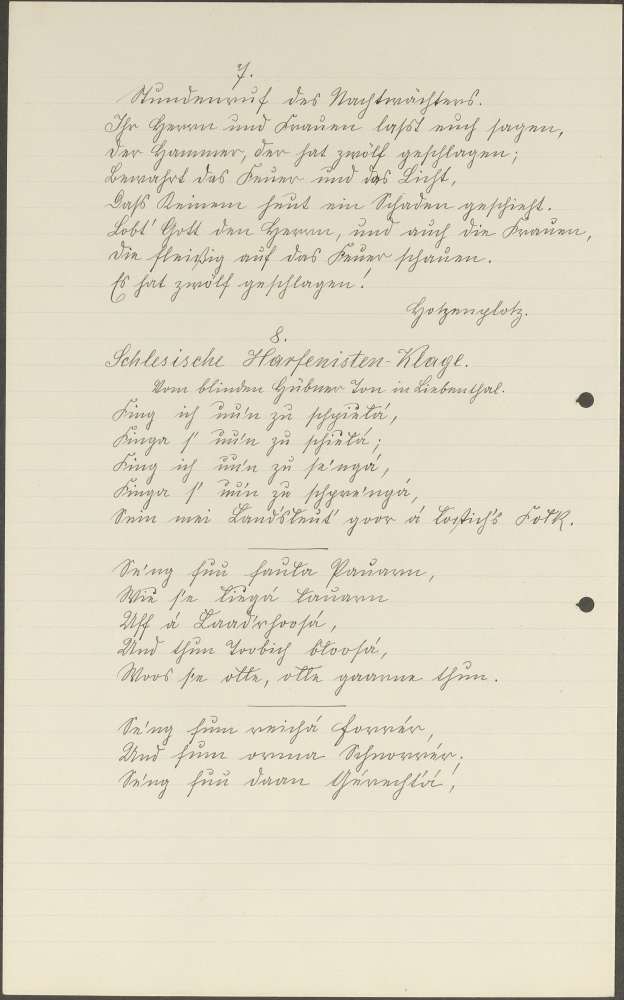 7.
Stundenruf des Nachtwächters.
Ihr Herrn und Frauen laßt euch sagen,
Der Hammer, der hat zwölf geschlagen;
Bewahrt das Feuer und das Licht,
Daß Keinem heut ein Schaden geschieht.
Lobt' Gott den Herrn, und auch die Frauen,
Die fleißig auf das Feuer schauen.
Es hat zwölf geschlagen!
Hotzenplotz.
8.
Schlesische Harfenisten-Klage.
Vom blinden Hübner Ton in Liebenthal.
Fing ich uu'n zu schpielá,
Finga s' uu'n zu schielá;
Fing ich uu'n zu se'ngá,
Finga s' uu'n zu schpre'ngá,
Sein mei Landsleut' goor á lostich's Folk.
Se'ng huu faula Pauarn,
Wie se liegá lauarn
Uff á Laad'rhoosá,
Und thun Toobich bloosá,
Woos se olle, olle gaarne thun.
Se'ng hum reichá Forrér,
Und hum orma Schnorrér;
Se'ng huu daan Gérechtá,